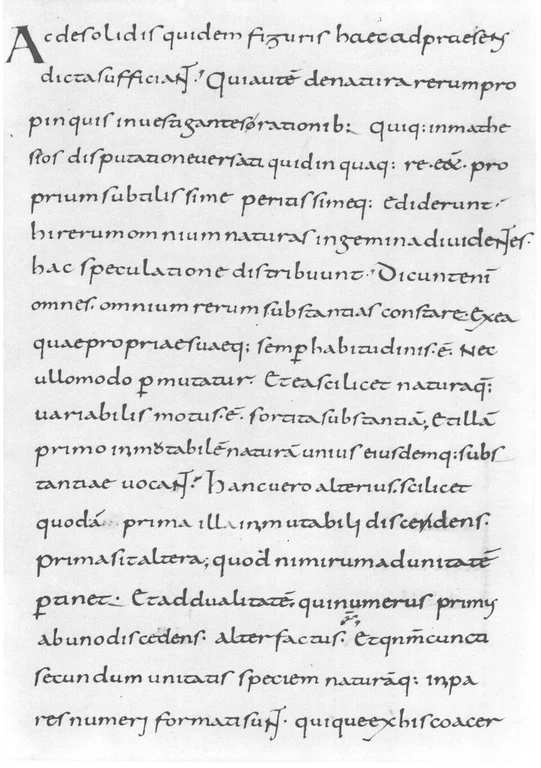 Ac desolidis quidem figuris haec adpraesens
dicta sufficiant. Qui autē denatura rerum pro
pinquis investigantes rationib; Quiq: inmathe
seos disputatione versati quidinquaq: re. eēē. pro
prium subtilissime peritissimeq; ediderunt.
hi rerum omnium naturas ingemina dividentes.
hac speculatione distribuunt. Dicunt enī
omnes. omnium rerum substantias constare. Exea
quae propriae suaeq; semꝑ habitudinis. ē. Nec
ullomodo ꝑmutatur. Etea scilicet naturaq̄;
variabilis motus. ē. sortita substantiā; Etillā
primo inmutabilē naturā unius eiusdemq: subs
tantiae vocant. Hanc vero alterius. scilicet
quodā prima illa inmutabili discedens.
prima sit altera; quod nimirum adunitatē
ꝑtinet. Et addualitatē, qui numerus primus
abuno discedens. alter factus. Etqnm̄ cuncti
secundum unitatis speciem naturāq: inpa
res numeri formati sunt. quique ex his coacer